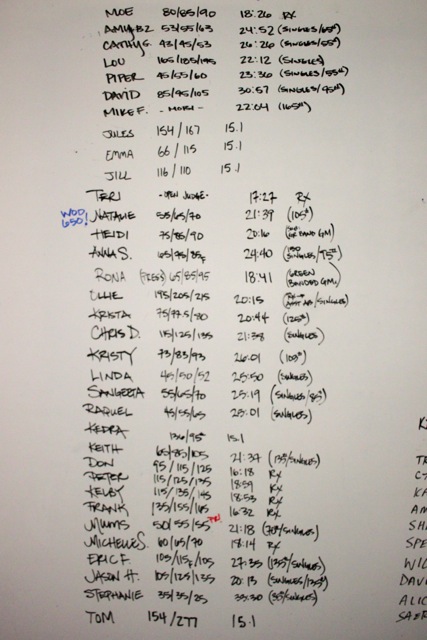 MOE 80/85/90 18:26 RX
AMYBZ 53/55/63 24:52 (SINGLES/65#)
CATHY G. 43/45/53 26:26 (SINGLES/55#)
LOU 165/185/195 22:12 (SINGLES)
PIPER 45/55/60 23:36 (SINGLES/55#)
DAVID 85/95/105 30:57 (SINGLES/95#)
MIKE F. - MOBI - 22:04 (165#)
JULES 154/167 15.1
EMMA 66/115 15.1
JILL 116/110 15.1
TERI -OPEN JUDGE- 17:27 RX
WOD 650! NATALIE 55/65/70 21:39 (105#)
HEIDI 75/85/90 20:16 BAND GM)
ANNA S. 65/75/85F 24:40 SINGLES/75#)
RONA (PRESS) 65/85/95 18:41 (GREEN BANDED GM)
OLLIE 195/205/215 20:15 /SINGLES)
KRISTA 75/77.5/80 20:44 (125#)
CHRIS D. 115/125/135 21:38 (SINGLES)
KRISTY 73/83/93 26:01 (103#)
LINDA 45/50/52 25:50 (SINGLES)
SANGEETA 55/65/70 25:19 (SINGLES/85#)
RAQUEL 45/55/65 23:01 (SINGLES)
KEDRA 136/95# 15.1
KEITH 65/85/105 21:37 (135/SINGLES)
DON 95/115/125 16:18 RX
PETER 115/125/135 18:59 RX
KELBY 115/135/145 18:53 RX
FRANK 135/155/165 16:32 RX
MUMS 50/55/55 PR! 21:18 (70#/SINGLES)
MICHELLE S. 60/65/70 18:14 RX
ERIC F. 105/115F/105 27:35 (135#/SINGLES)
JASON H. 105/125/135 20:13 (SINGLES/135#)
STEPHANIE 35/35/25 33:30 (35/SINGLES)
TOM 154/277 15.1
K
TR
C
KA
AM
SHA
SPE
WIL
DAV
ALIC
SAER